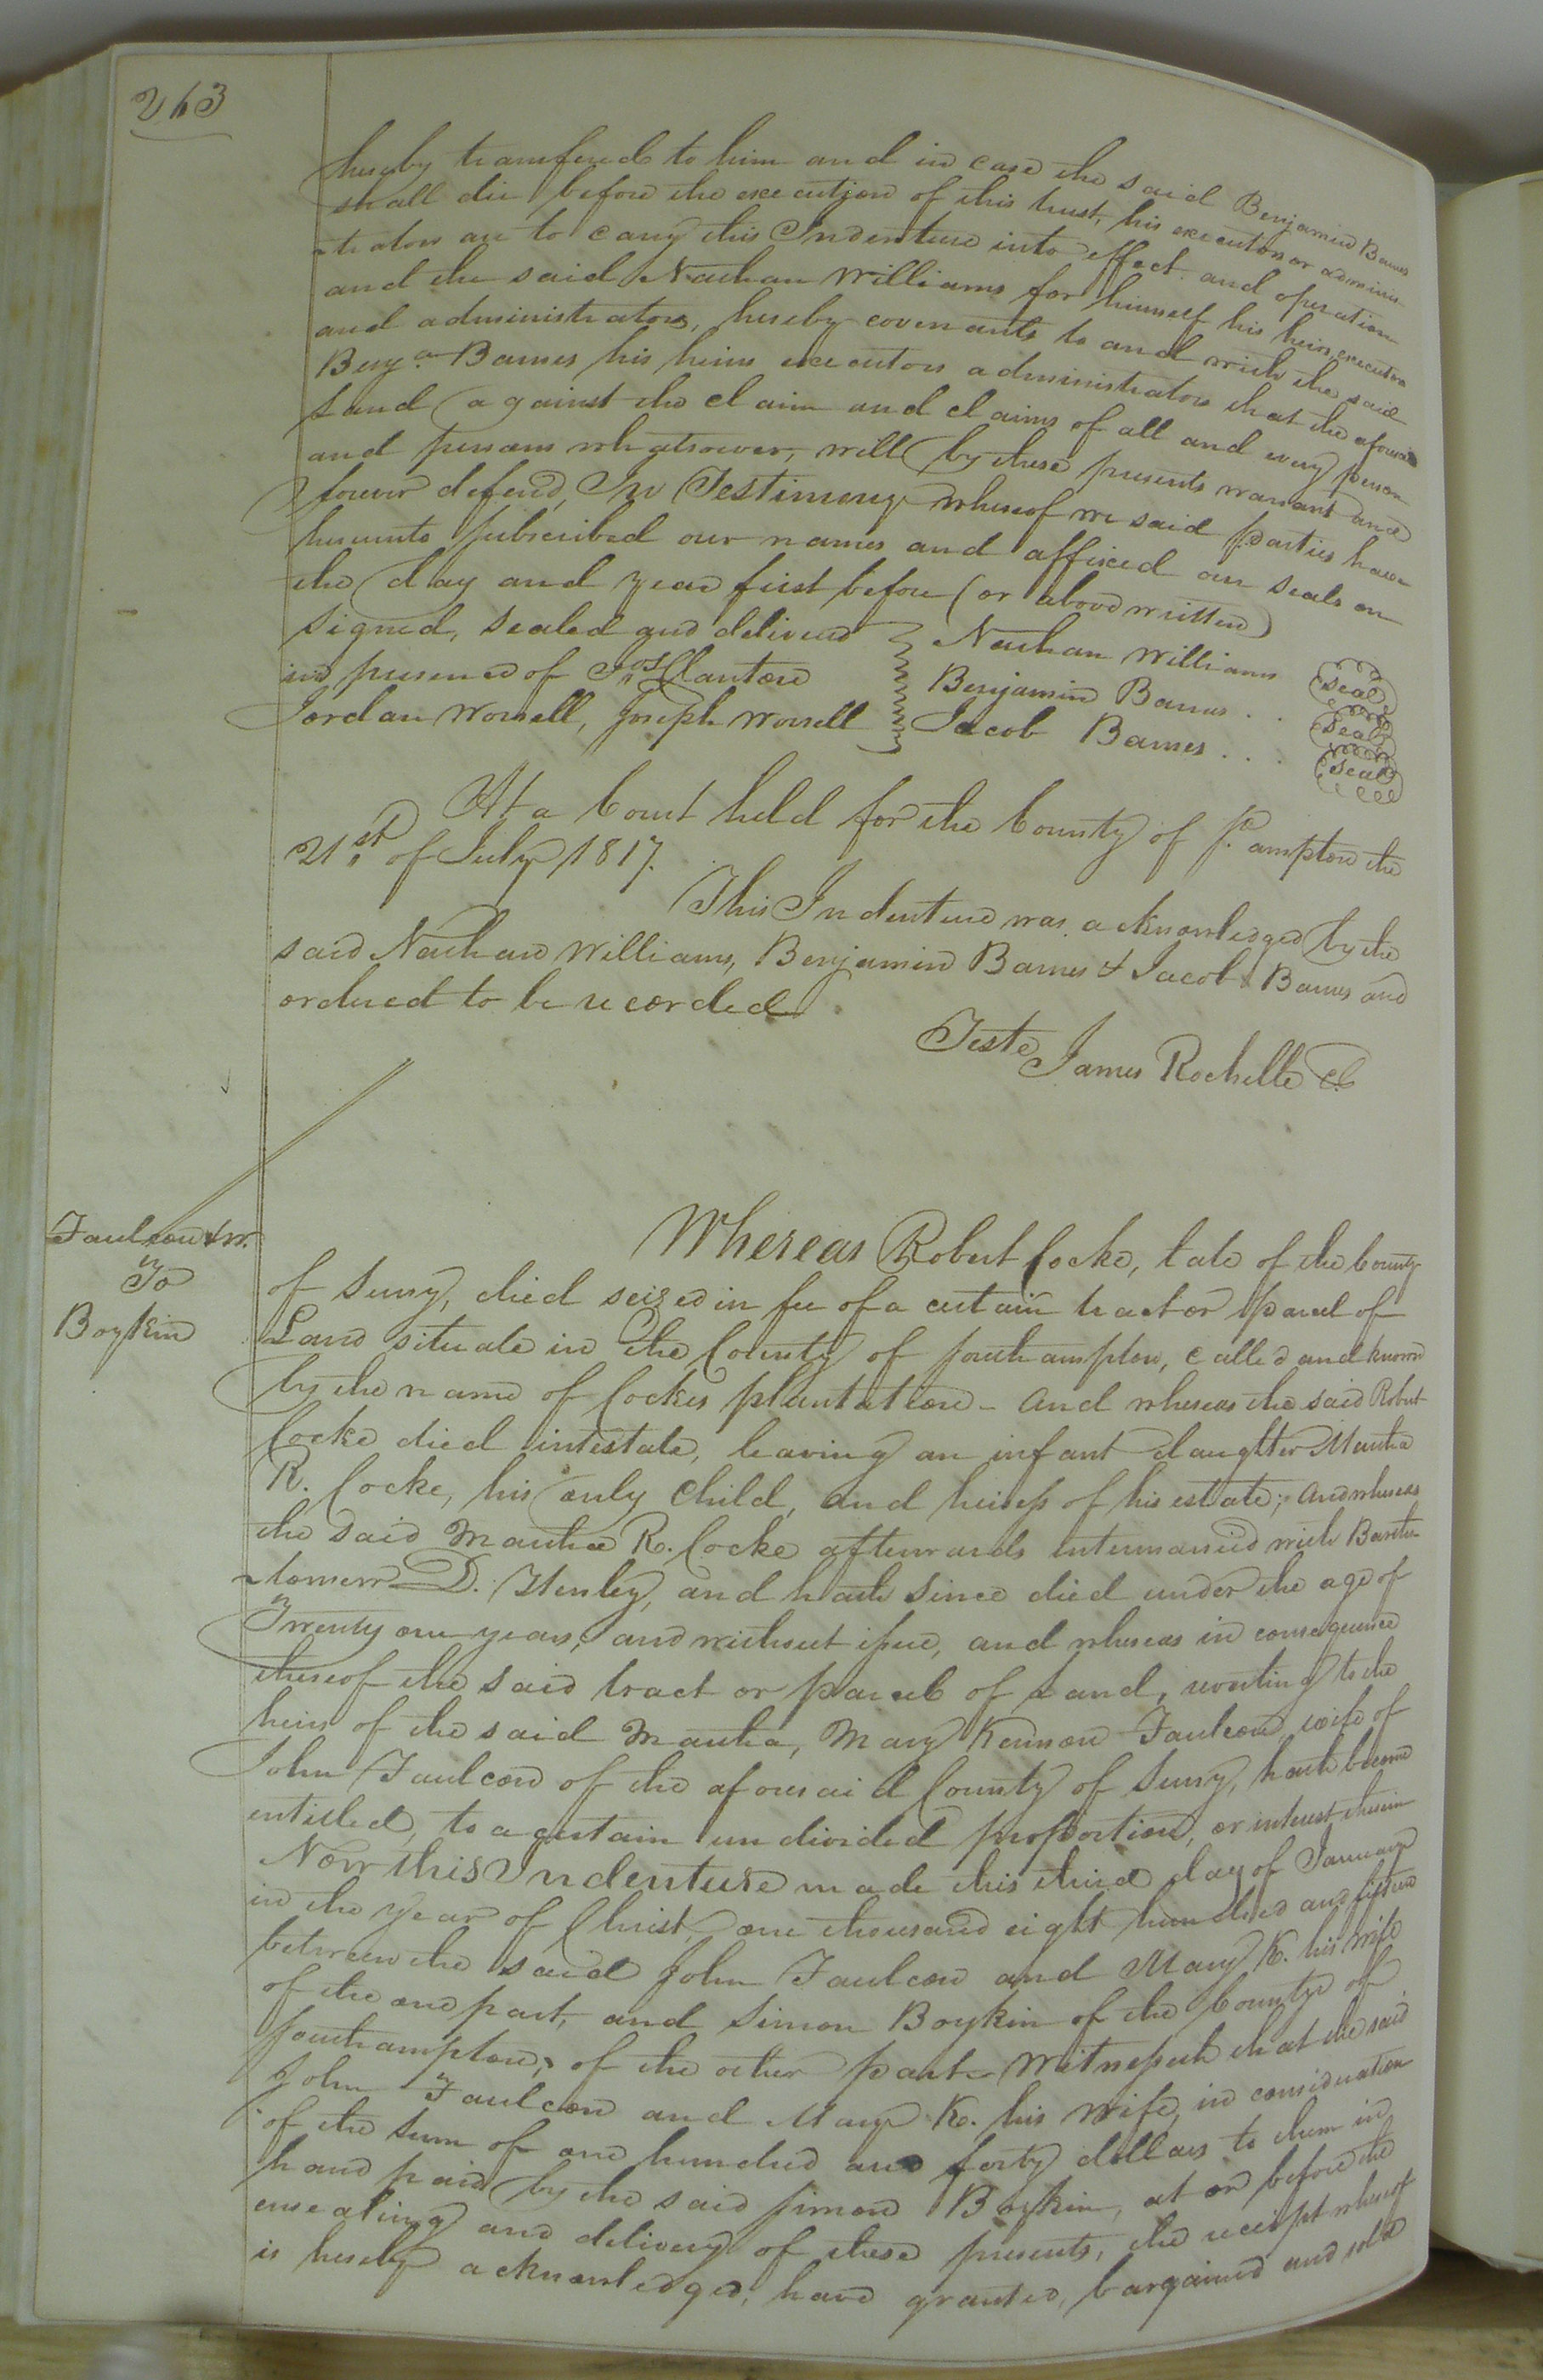 263
hereby transfered to him and in case the said Benjamin Barnes
shall die before the execution of this trust, his executors or adminis-
-trators are to carry this Indenture into effect. and operation
and the said Nathan Williams for himself his heirs executors
and administrators, hereby covenants to and with the said
Benja. Barnes his heirs executors administrators that the aforesaid
Land against the claim and claims of all and every person
and persons whatsoever, will by these presents warrant and
forever defend, In Testimony whereof we said parties have
hereunto subscribed our names and affixed our seals on
the day and year first before (or above written)
Signed, Sealed and delivered
in presence of Jos. Clanton
Jordan Worrell, Joseph Worrell
Nathan Williams Seal
Benjamin Barnes . . Seal
Jacob Barnes . . . Seal
At a Court held for the County of S.ampton the
21st of July 1817.
This Indenture was acknowledged by the
said Nathan Williams, Benjamin Barnes & Jacob Barnes and
ordered to be recorded
Teste James Rochelle Cl.
Faulcon & W.
To
Boykin
Whereas Robert Cocke, late of the County
of Surry, died seized in fee of a certain tract or parcel of
Land situate in the County of Southampton, called and known
by the name of Cockes plantation - and whereas the said Robert
Cocke died intestate, leaving an infant daughter Martha
R. Cocke, his only Child, and heiress of his estate; and whereas
the said Martha R. Cocke afterwards intermarried with Bartho-
-lomew D. Henley, and hath since died under the age of
Twenty one years, and without issue, and whereas in consequence
thereof the said tract or parcel of Land, reverting to the
heirs of the said Martha, Mary Kennon Faulcon, wife of
John Faulcon of the aforesaid County of Surry, hath become
entitled, to a certain undivided proportion, or interest therein
Now this Indenture made this third day of January
in the year of Christ, one thousand eight hundred and fifteen
between the said John Faulcon and Mary K. his wife
of the one part, and Simon Boykin of the County of
Southampton, of the other part - Witnesseth that the said
John Faulcon and Mary K. his wife, in consideration
of the sum of one hundred and forty dollars to them in
hand paid by the said Simon Boykin, at or before the
ensealing and delivery of these presents, the receipt whereof
is hereby acknowledged, have granted, bargained and sold